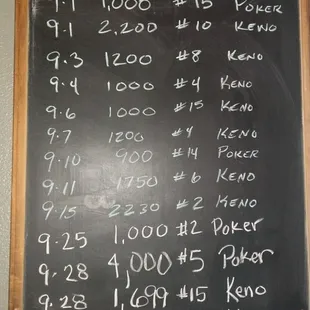 9.1 1,000 #15 POKER
9.1 2,200 #10 KENO
9.3 1200 #8 KENO
9.4 1000 #4 KENO
9.6 1000 #15 KENO
9.7 1200 #4 KENO
9.10 900 #14 POKER
9.11 1750 #6 KENO
9.15 2230 #2 KENO
9.25 1,000 #2 Poker
9.28 4,000 #5 Poker
9.28 1,699 #15 Keno